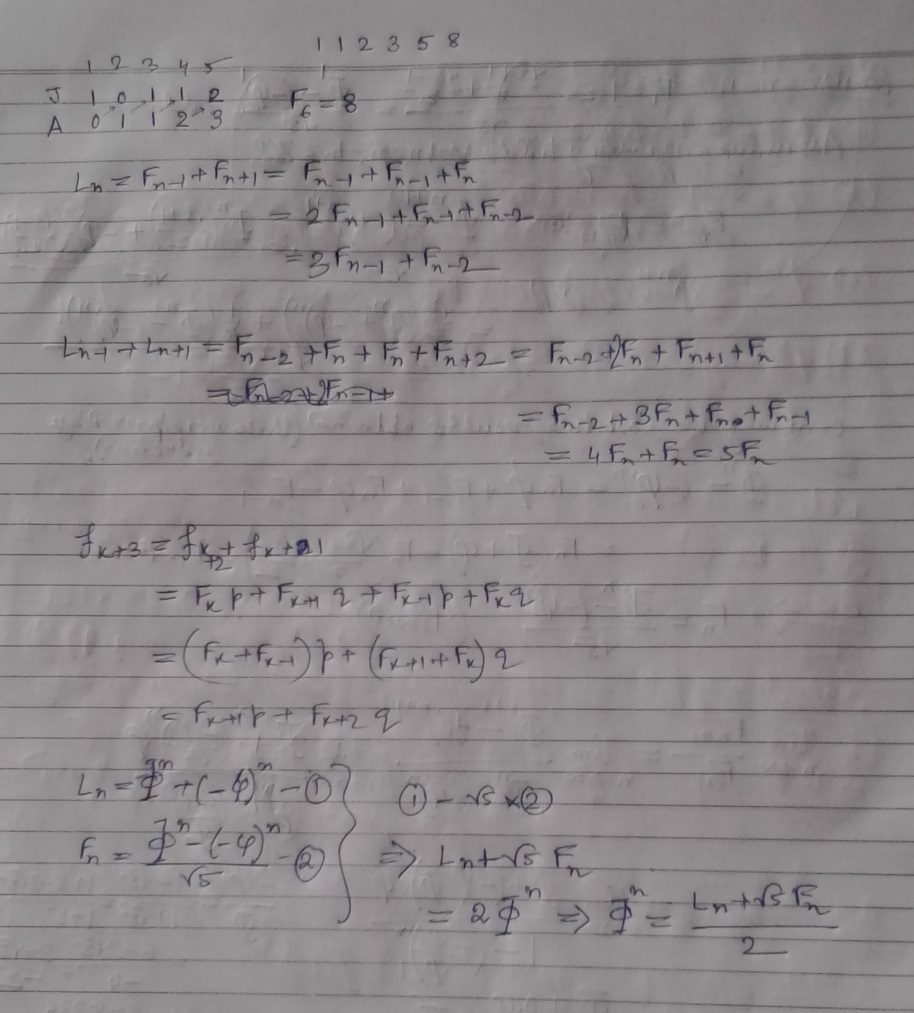 1 1 2 3 5 8
1 2 3 4 5
J 1 0 1 1 2 F₆ = 8
A 0 1 1 2 3
Lₙ = Fₙ₋₁ + Fₙ₊₁ = Fₙ₋₁ + Fₙ₋₁ + Fₙ
= 2Fₙ₋₁ + Fₙ₋₁ + Fₙ₋₂
= 3Fₙ₋₁ + Fₙ₋₂
Lₙ₋₁ + Lₙ₊₁ = Fₙ₋₂ + Fₙ + Fₙ + Fₙ₊₂ = Fₙ₋₂ + 2Fₙ + Fₙ₊₁ + Fₙ
= Fₙ₋₂ + 3Fₙ + Fₙ + Fₙ₋₁
= 4Fₙ + Fₙ = 5Fₙ
fₖ₊₃ = fₖ₊₂ + fₖ₊₁
= Fₖ p + Fₖ₊₁ q + Fₖ₋₁ p + Fₖ q
= (Fₖ + Fₖ₋₁) p + (Fₖ₊₁ + Fₖ) q
= Fₖ₊₁ p + Fₖ₊₂ q
Lₙ = Φⁿ + (-φ)ⁿ - ① } ① - √5 × ②
Fₙ = (Φⁿ - (-φ)ⁿ)/√5 - ② ⇒ Lₙ + √5 Fₙ
= 2Φⁿ ⇒ Φⁿ = (Lₙ + √5 Fₙ)/2